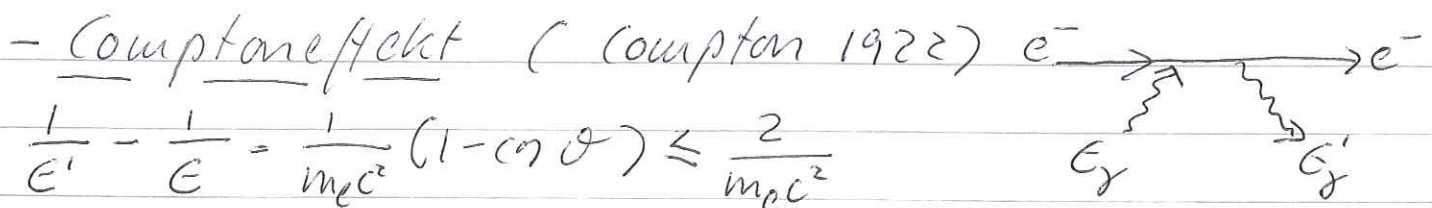 - Comptoneffekt ( Compton 1922) e⁻ → e⁻
1/E' - 1/E = 1/(mₑc²) (1-cos ϑ) ≤ 2/(mₑc²) E_γ E'_γ